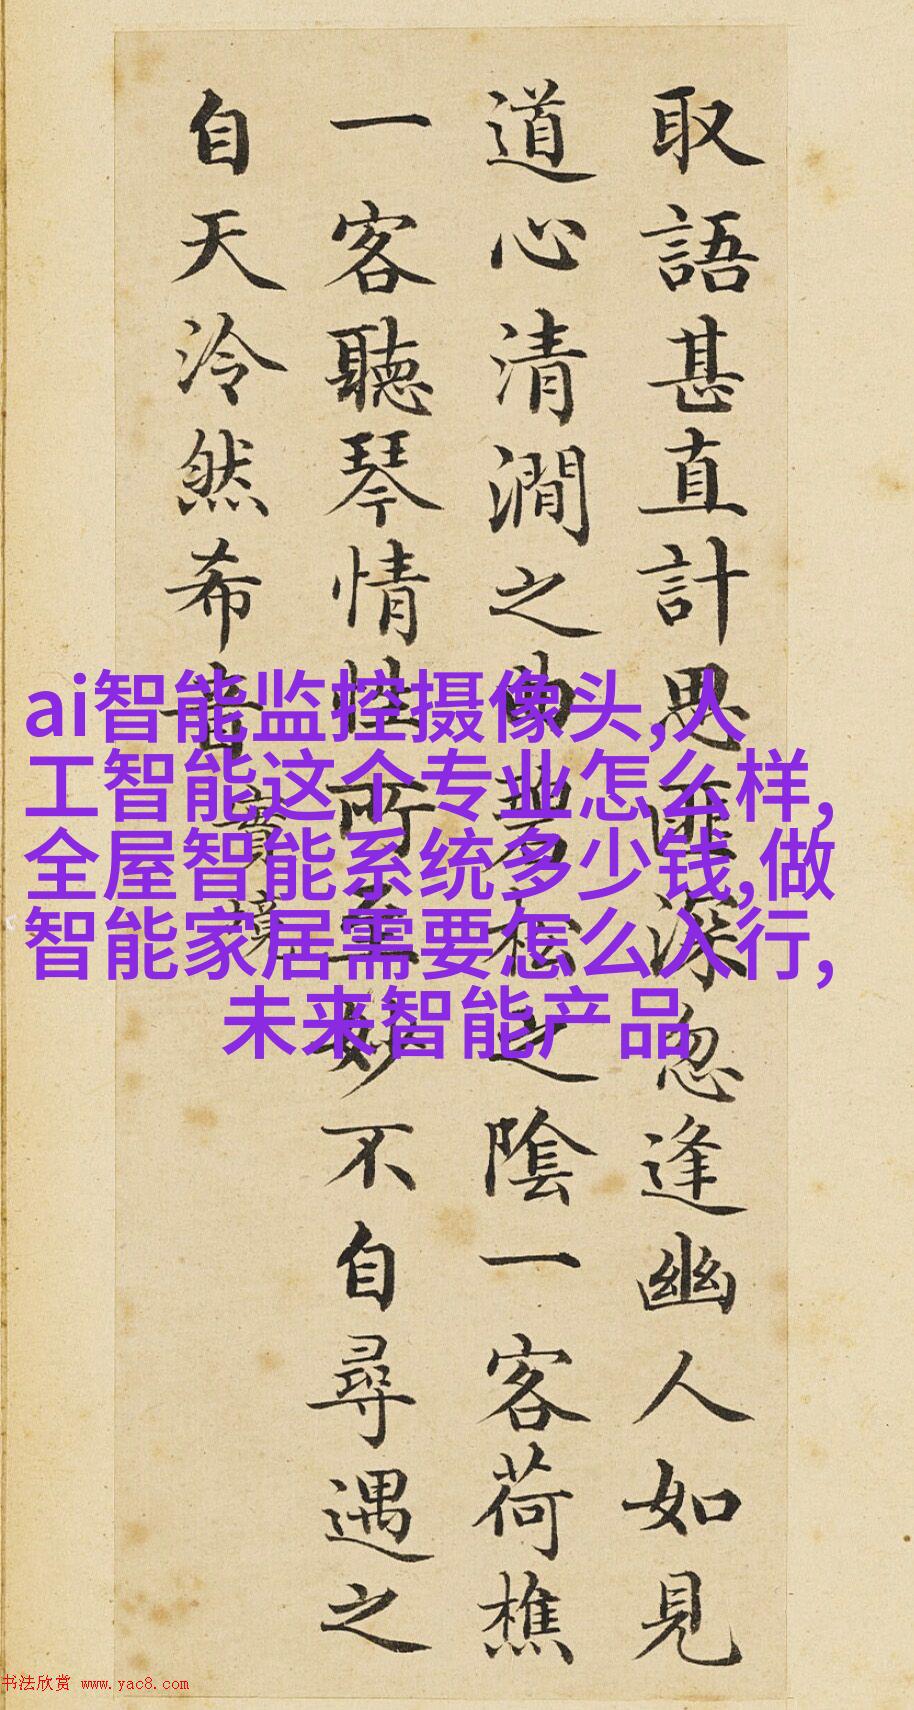 取語甚直計思匪深忽逢幽人如見
道心清澗之曲碧松之陰一客荷樵
一客聽琴情性所至妙不自尋遇之
自天泠然希音
實境
ai智能监控摄像头,人
工智能这个专业怎么样,
全屋智能系统多少钱,做
智能家居需要怎么入行,
未来智能产品
书法欣赏 www.yac8.com